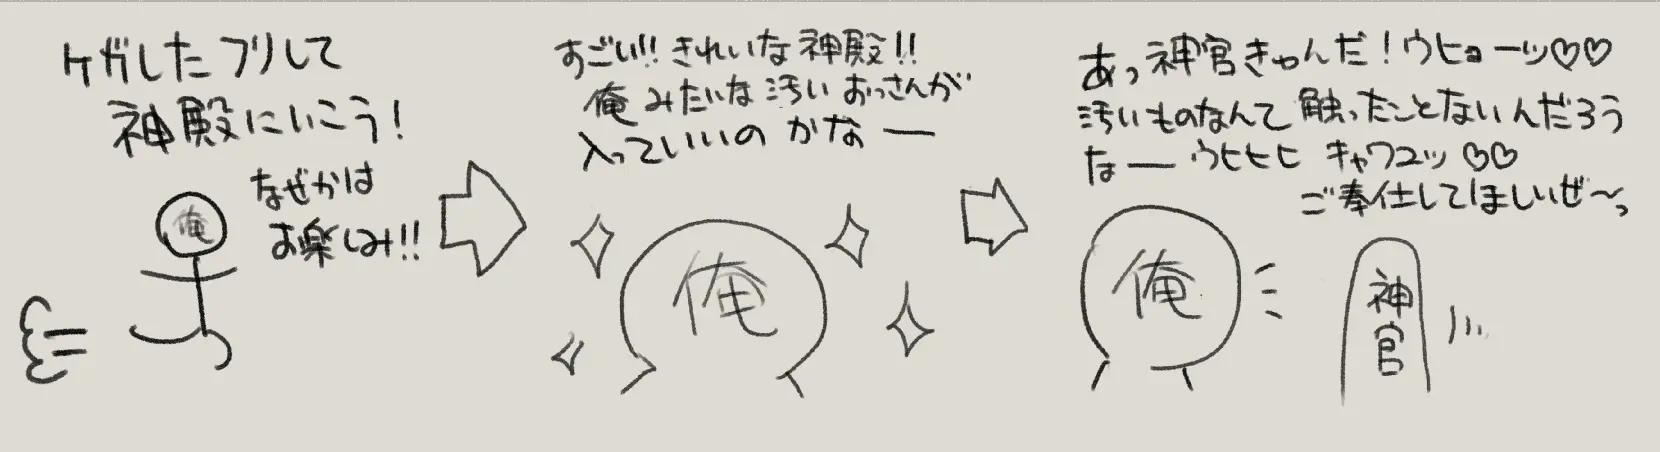 ケガしたフリして
神殿にいこう!
なぜかは
お楽しみ!!
俺
すごい!!きれいな神殿!!
俺みたいな汚いおっさんが
入っていいのかなー
俺
あっ神官きゃんだ!ウヒョーッ♡♡
汚いものなんて触ったことないんだろう
なーウヒヒヒ キャワユッ♡♡
ご奉仕してほしいぜ〜っ
俺
神官